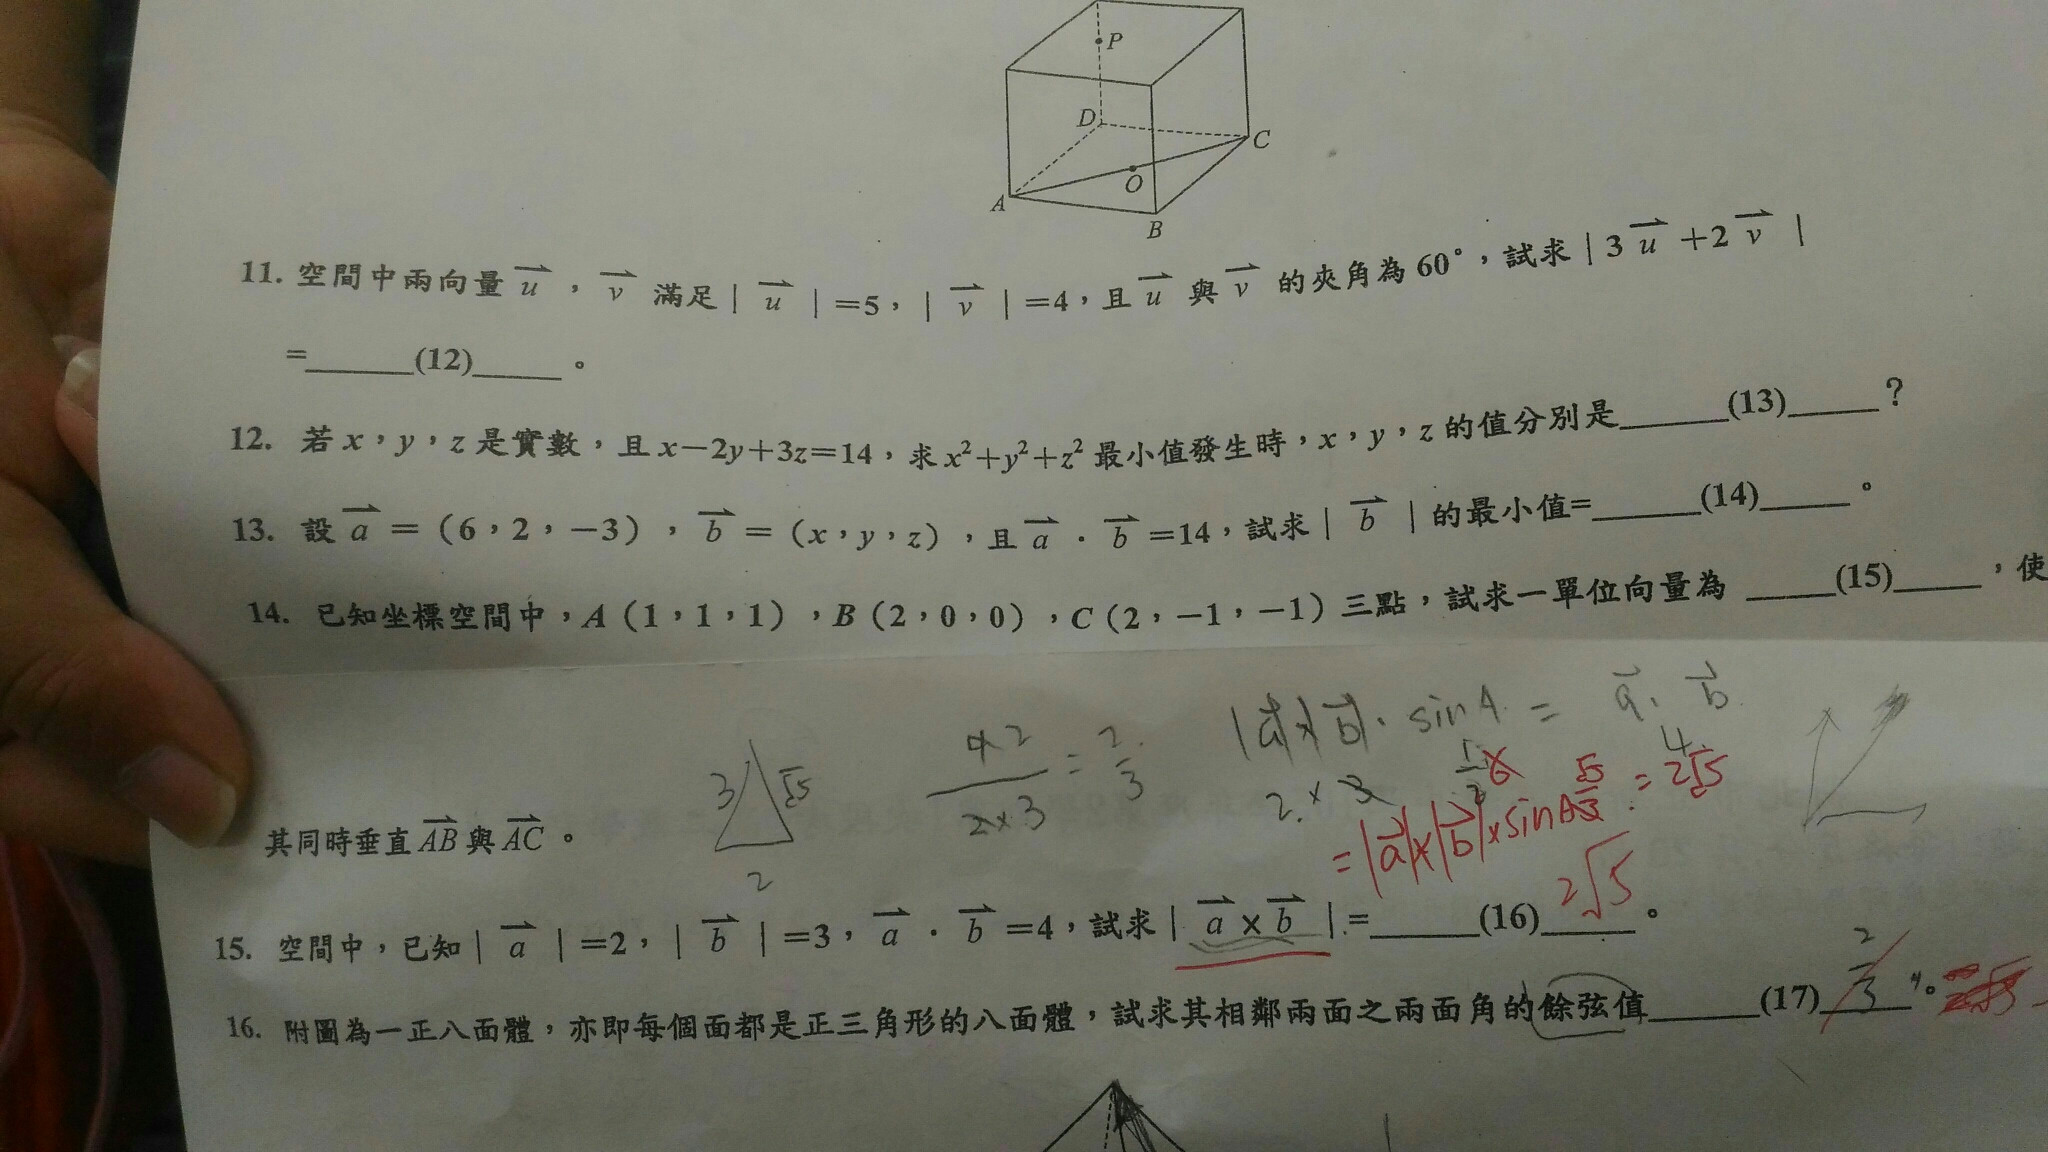 P
D
C
O
A
B
11. 空間中兩向量 u，v 滿足 | u | =5，| v | =4，且 u 與 v 的夾角為 60°，試求 | 3 u +2 v |
=______(12)_____。
12. 若 x，y，z 是實數，且 x−2y+3z=14，求 x²+y²+z² 最小值發生時，x，y，z 的值分別是______(13)_____?
13. 設 a =（6，2，−3），b =（x，y，z），且 a · b =14，試求 | b | 的最小值=______(14)_____。
14. 已知坐標空間中，A（1，1，1），B（2，0，0），C（2，−1，−1）三點，試求一單位向量為 _____(15)_____，使
其同時垂直 AB 與 AC。
3 √5
2
4 2 / 2×3 = 2/3
|a|×|b|· sinA = a · b
2 × 3 4
= |a|×|b|×sinA √5/3 = 2√5
15. 空間中，已知 | a | =2，| b | =3，a · b =4，試求 | a × b | =______(16)_____。 2√5
16. 附圖為一正八面體，亦即每個面都是正三角形的八面體，試求其相鄰兩面之兩面角的餘弦值______(17)_____。 2/3